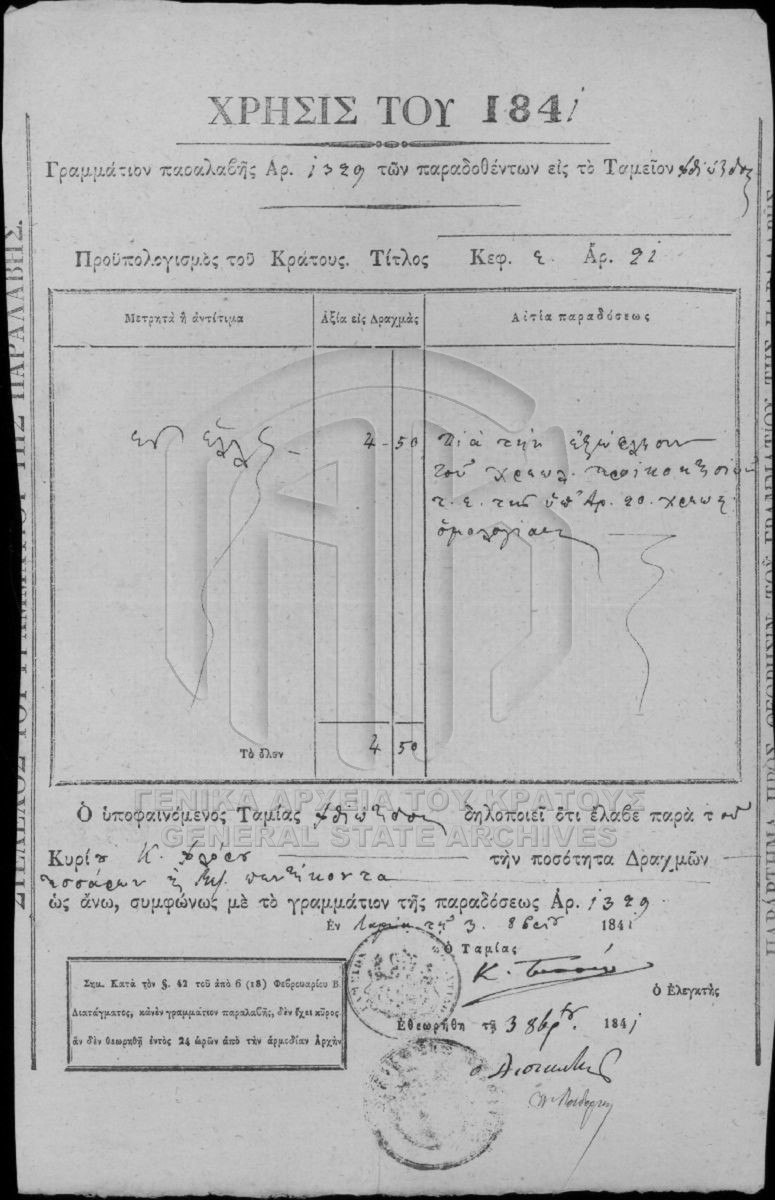 ΧΡΗΣΙΣ ΤΟΥ 1841
Γραμμάτιον παραλαβῆς Αρ. 1329 τῶν παραδοθέντων εἰς τὸ Ταμεῖον Φθιώτιδος
Προϋπολογισμὸς τοῦ Κράτους. Τίτλος Κεφ. ε. Ἀρ. 21
Μετρητὰ ἢ ἀντίτιμα Ἀξία εἰς Δραχμὰς Αἰτία παραδόσεως
4 - 50 Διὰ τὴν ἐξόφλησιν
τοῦ
τ. ε. τῆς ὑπ' Αρ. 20. χρεωσ.
ὁμολογίας
Τὸ ὅλον 4 50
Ὁ ὑποφαινόμενος Ταμίας Φθιώτιδος δηλοποιεῖ ὅτι ἔλαβε παρὰ τοῦ
Κυρίου Κ. τὴν ποσότητα Δραχμῶν
τεσσάρων πεντήκοντα
ὡς ἄνω, συμφώνως μὲ τὸ γραμμάτιον τῆς παραδόσεως Ἀρ. 1329.
Ἐν Λαμίᾳ τῇ 3. 8βρίου 1841
Ὁ Ταμίας
Κ.
Ὁ Ἐλεγκτὴς
Ἐθεωρήθη τῇ 3 8βρίου. 1841
Σημ. Κατὰ τὸν §. 42 τοῦ ἀπὸ 6 (18) Φεβρουαρίου Β.
Διατάγματος, κἀνὲν γραμμάτιον παραλαβῆς, δὲν ἔχει κῦρος
ἂν δὲν θεωρηθῇ ἐντὸς 24 ὡρῶν ἀπὸ τὴν ἁρμοδίαν Ἀρχήν
ΣΤΕΛΕΧΟΣ ΤΟΥ ΓΡΑΜΜΑΤΙΟΥ ΤΗΣ ΠΑΡΑΛΑΒΗΣ.
ΠΑΡΑΡΤΗΜΑ ΠΡΟΣ ΘΕΩΡΗΣΙΝ ΤΟΥ ΓΡΑΜΜΑΤΙΟΥ ΤΗΣ ΠΑΡΑΛΑΒΗΣ
ΓΕΝΙΚΑ ΑΡΧΕΙΑ ΤΟΥ ΚΡΑΤΟΥΣ
GENERAL STATE ARCHIVES